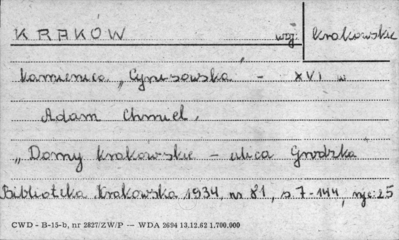 KRAKÓW woj: krakowskie
Kamienica „Cyrusowska” - XVI w
Adam Chmiel.
„Domy krakowskie – ulica Grodzka”
Biblioteka Krakowska 1934, nr 81, s 7-144, ryc: 25
CWD - B-15-b, nr 2827/ZW/P — WDA 2694 13.12.62 1.700.000